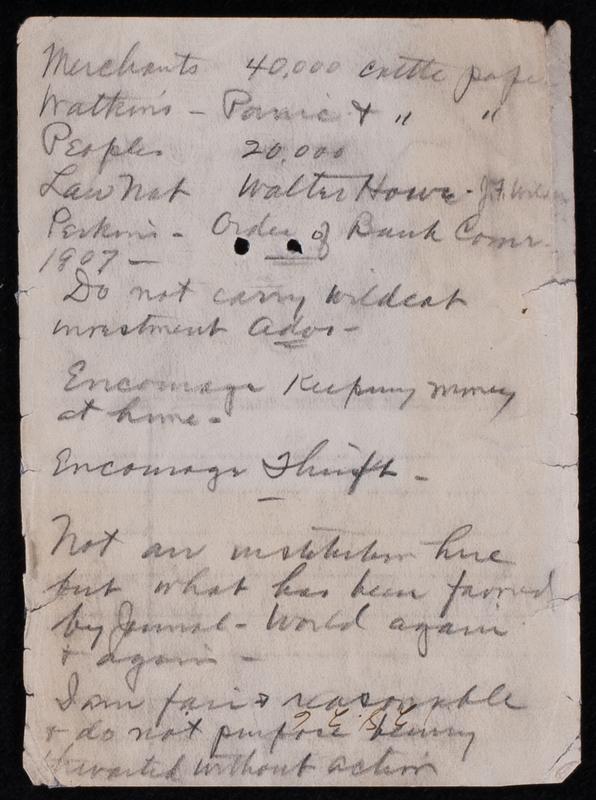 Merchants 40,000 cattle pape
Watkins - Panic & " "
Peoples 20,000
Law Nat Walter Howe - J.F. Wils
Perkins - Order of Bank Comr.
1907 -
Do not carry wildcat
investment Advs -
Encourage Keeping money
at home -
Encourage Thrift -
Not an institution here
but what has been favored
by Journal-World again
& again -
I am fair & reasonable
& do not purpose being
thwarted without action